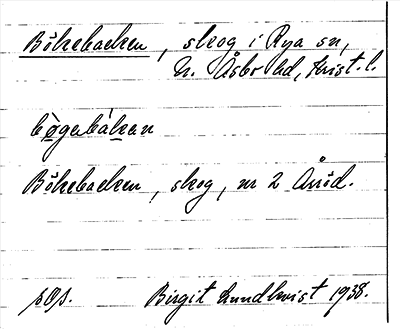 Bökebacken, skog i Rya sn,
N. Åsbo hd, Krist. l.
bø̀gabákan
Bökebacken, skog, nr 2 Åröd.
Birgit Lundkvist 1938.